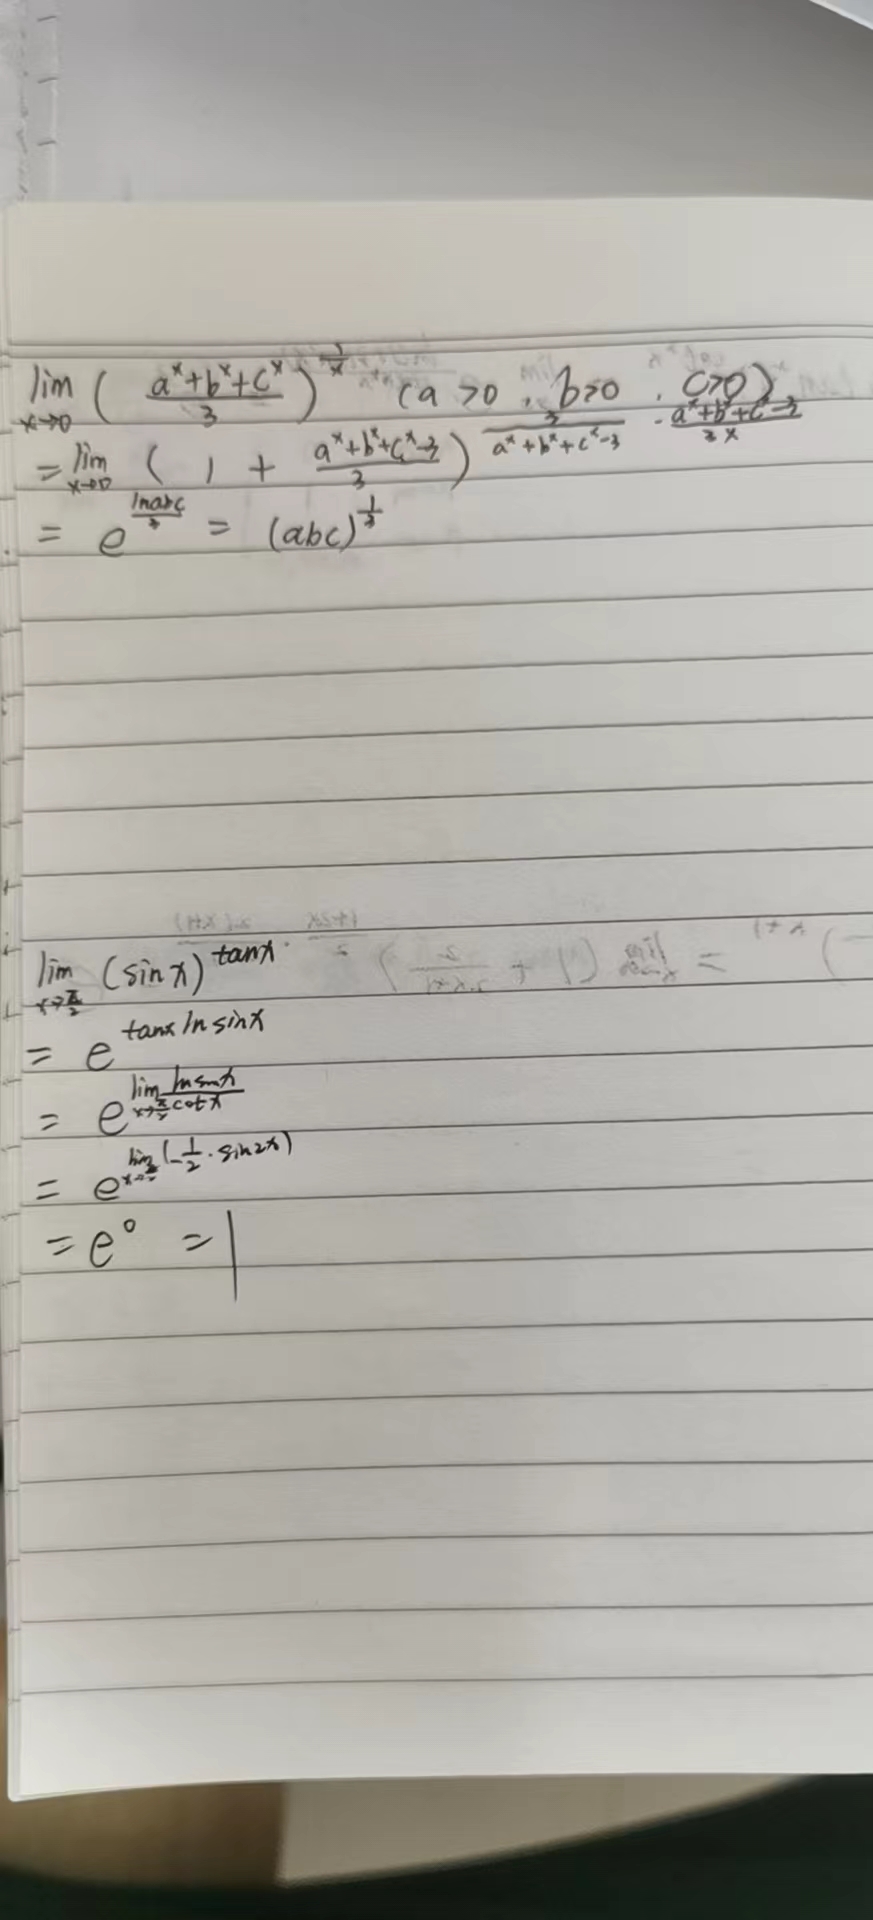 lim x→0 ( (a^x+b^x+c^x)/3 )^(1/x) (a>0, b>0, c>0)
= lim x→0 ( 1 + (a^x+b^x+c^x-3)/3 )^( 3/(a^x+b^x+c^x-3) · (a^x+b^x+c^x-3)/(3x) )
= e^(lnabc/3) = (abc)^(1/3)
lim x→π/2 (sinx)^tanx
= e^(tanx ln sinx)
= e^(lim x→π/2 lnsinx/cotx)
= e^(lim x→π/2 (-1/2 · sin2x))
= e^0 = 1